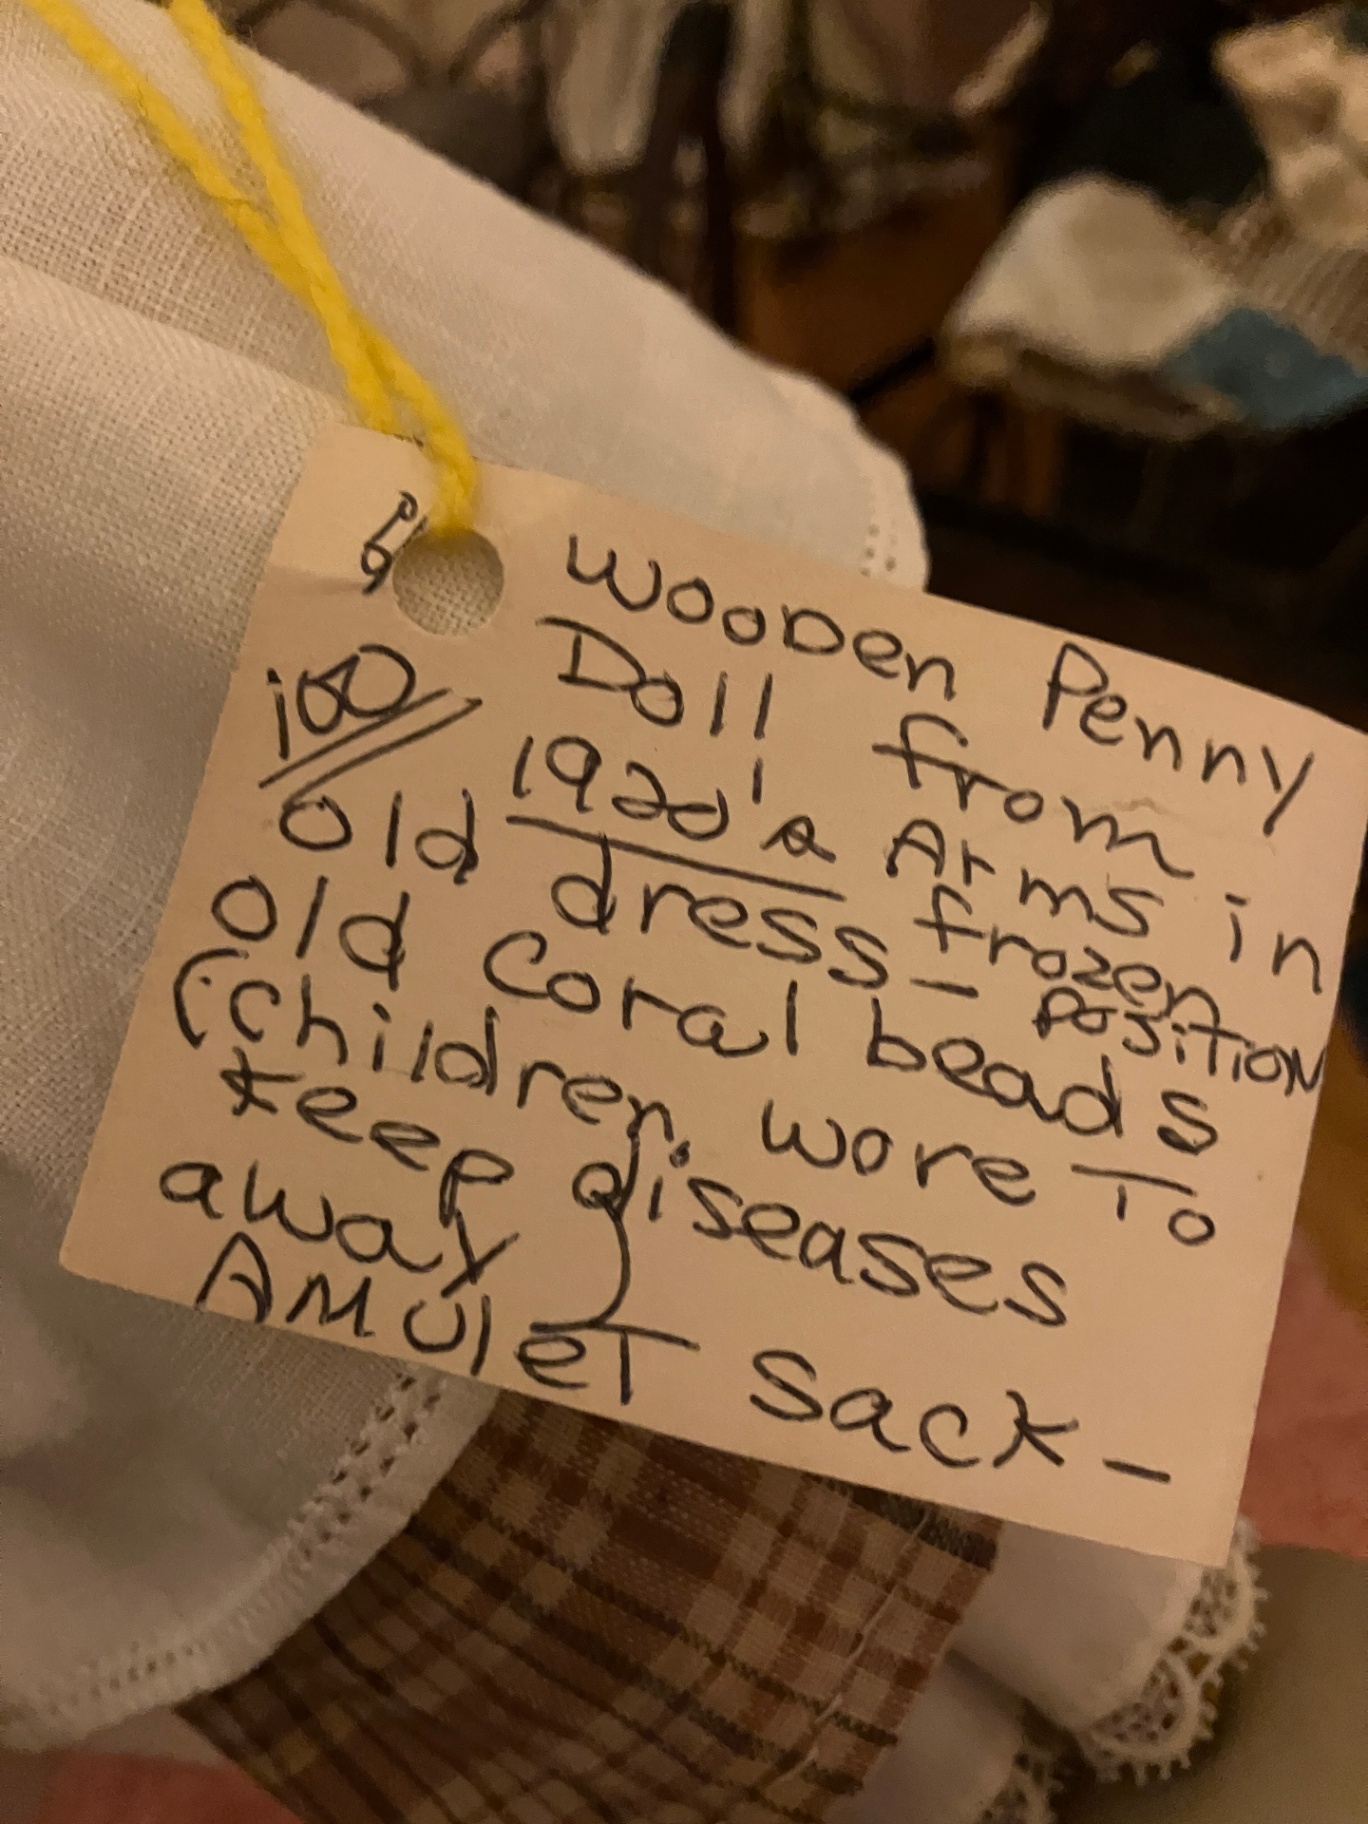 Wooden Penny
Doll from
100
1920's Arms in
Old dress - frozen
Position
old Coral beads
(children wore To
keep diseases
away)
AMUleT Sack -